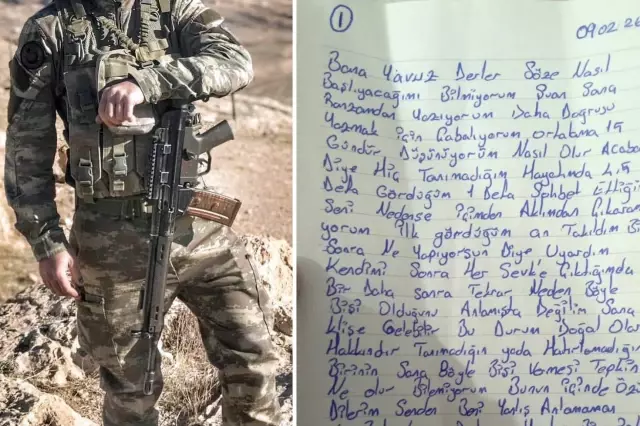 1
09.02.26
Bana Yavuz Derler Söze Nasıl
Başlıyacağımı Bilmiyorum Şuan Sana
Ranzamdan Yazıyorum Daha Doğrusu
Yazmak için Çabalıyorum ortalama 15
Gündür Düşünüyorum Nasıl Olur Acaba
Diye Hiç Tanımadığım Hayatında
Defa Gördüğüm 1 Defa Sohbet Ettiğim
Seni Nedense içimden Aklımdan Çıkaramı
yorum ilk gördüğüm an Takıldım
Sonra Ne Yapıyorsun Diye Uyardım
Kendimi Sonra Her Sevk'e Çıktığımda
Bir Daha sonra Tekrar Neden Böyle
Bişi Olduğunu Anlamışta Değilim Sana
Klişe Gelebilir Bu Durum Doğal Olar
Hakkındır Tanımadığın yada Hatırlamadığın
Birinin Sana Böyle Bişi Vermesi Tepkin
Ne olur Bilmiyorum Bunun içinde Öz
Dilerim Senden Beni Yanlış Anlamaman